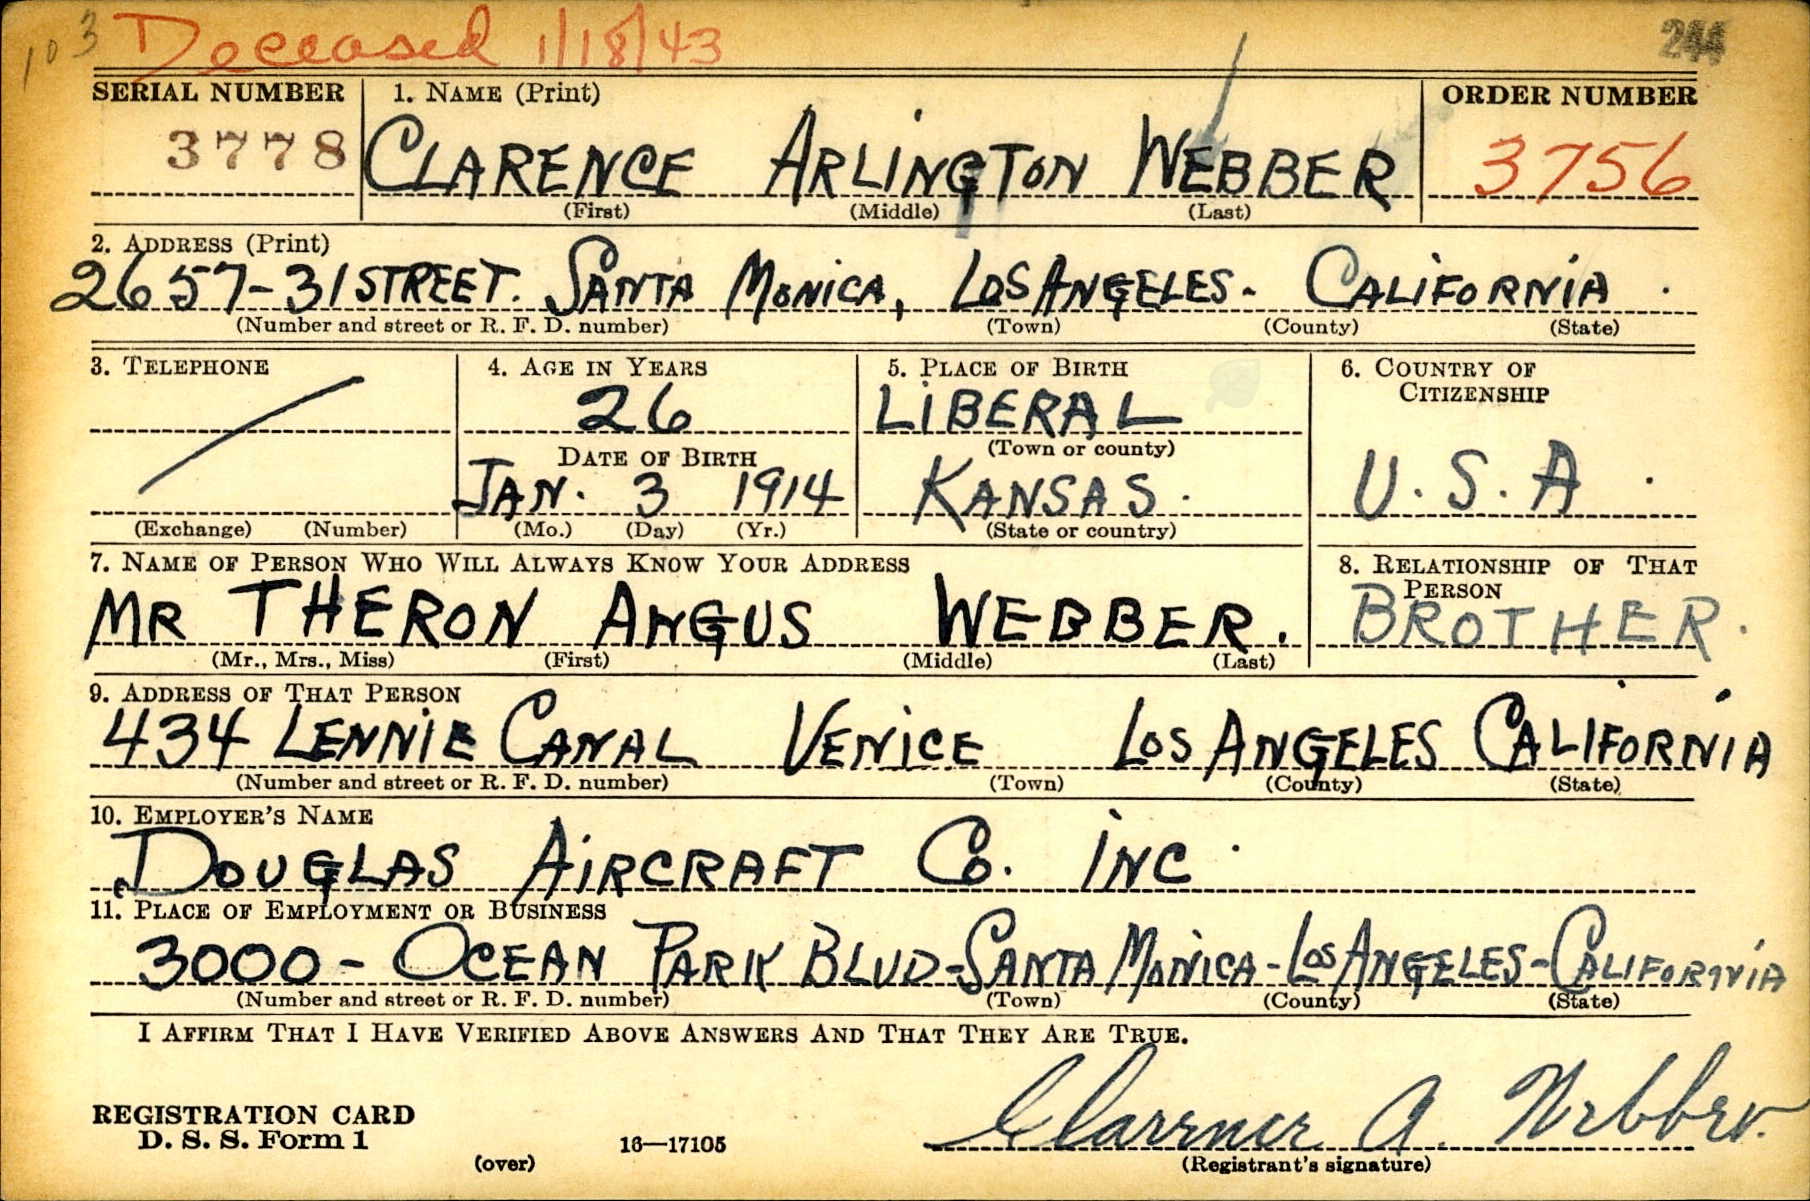 103 Deceased 1/18/43 244
SERIAL NUMBER 1. NAME (Print) ORDER NUMBER
3778 CLARENCE ARLINGTON WEBBER 3756
(First) (Middle) (Last)
2. ADDRESS (Print)
2657-31 STREET. SANTA MONICA, LOS ANGELES- CALIFORNIA.
(Number and street or R. F. D. number) (Town) (County) (State)
3. TELEPHONE 4. AGE IN YEARS 5. PLACE OF BIRTH 6. COUNTRY OF
CITIZENSHIP
26 LIBERAL
DATE OF BIRTH (Town or county)
JAN. 3 1914 KANSAS. U.S.A.
(Exchange) (Number) (Mo.) (Day) (Yr.) (State or country)
7. NAME OF PERSON WHO WILL ALWAYS KNOW YOUR ADDRESS 8. RELATIONSHIP OF THAT
PERSON
MR THERON ANGUS WEBBER. BROTHER.
(Mr., Mrs., Miss) (First) (Middle) (Last)
9. ADDRESS OF THAT PERSON
434 LENNIE CANAL VENICE LOS ANGELES CALIFORNIA
(Number and street or R. F. D. number) (Town) (County) (State)
10. EMPLOYER'S NAME
DOUGLAS AIRCRAFT CO. INC.
11. PLACE OF EMPLOYMENT OR BUSINESS
3000 - OCEAN PARK BLVD-SANTA MONICA-LOS ANGELES-CALIFORNIA
(Number and street or R. F. D. number) (Town) (County) (State)
I AFFIRM THAT I HAVE VERIFIED ABOVE ANSWERS AND THAT THEY ARE TRUE.
Clarence A. Webber.
REGISTRATION CARD
D. S. S. Form 1 16—17105
(over) (Registrant's signature)